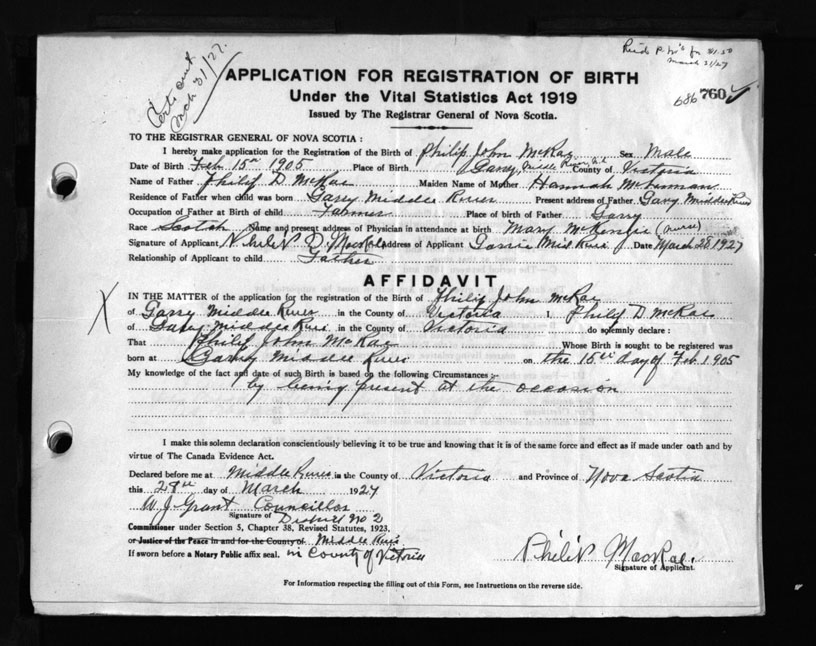 Certs sent
Mch 31/27.
Rec'd P.N's for $1.50
March 31/27
686 760
APPLICATION FOR REGISTRATION OF BIRTH
Under the Vital Statistics Act 1919
Issued by The Registrar General of Nova Scotia.
TO THE REGISTRAR GENERAL OF NOVA SCOTIA :
I hereby make application for the Registration of the Birth of Philip John McRae Sex Male
Date of Birth Feb 15th 1905 Place of Birth Garry, Middle River, County of Victoria
Name of Father Philip D McRae Maiden Name of Mother Hannah McLennan
Residence of Father when child was born Garry Middle River Present address of Father Garry Middle River
Occupation of Father at Birth of child Farmer Place of birth of Father Garry
Race Scotch Name and present address of Physician in attendance at birth Mary McKenzie (nurse)
Signature of Applicant Philip D. MacRae Address of Applicant Garrie Mid River Date March 28 1927
Relationship of Applicant to child Father
AFFIDAVIT
IN THE MATTER of the application for the registration of the Birth of Philip John McRae
of Garry Middle River in the County of Victoria I, Philip D McRae
of Garry Middle River in the County of Victoria do solemnly declare :
That Philip John McRae Whose Birth is sought to be registered was
born at Garry Middle River on the 15th day of Feb. 1905
My knowledge of the fact and date of such Birth is based on the following Circumstances :-
by being present at the occasion
I make this solemn declaration conscientiously believing it to be true and knowing that it is of the same force and effect as if made under oath and by
virtue of The Canada Evidence Act.
Declared before me at Middle River in the County of Victoria and Province of Nova Scotia
this 28th day of March 1927
W J Grant Councillor
Signature of District No 2
Commissioner under Section 5, Chapter 38, Revised Statutes, 1923.
or Justice of the Peace in and for the County of Middle River
If sworn before a Notary Public affix seal. in County of Victoria
Philip MacRae.
Signature of Applicant.
For Information respecting the filling out of this Form, see Instructions on the reverse side.